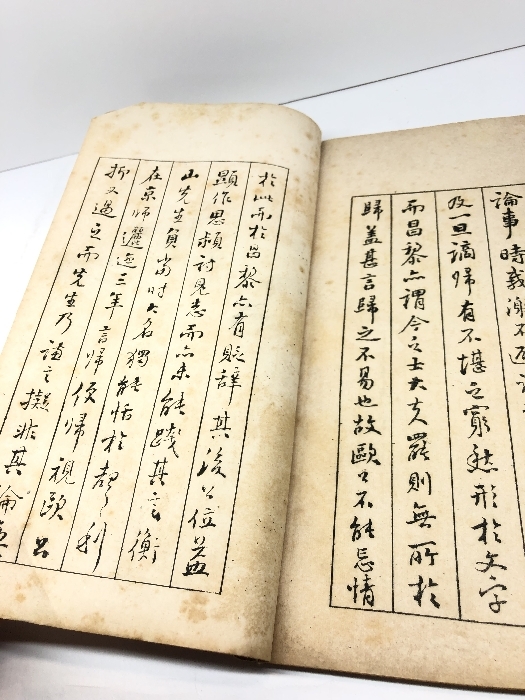 論事時義謝不
及一旦謫歸有不堪之窮愁形於文字
而昌黎亦謂今之士大夫罷則無所於
歸蓋甚言歸之不易也故歐公不能忘情
於此而於昌黎亦有貶辭其後公位益
顯作思潁詩見志而亦未能踐其言衡
山先生負當時大名獨能恬於聲利
在京師邐迤三年言歸便歸視歐公
抑又過之而先生乃謙言擬非其倫